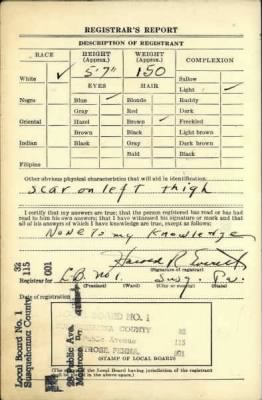 REGISTRAR'S REPORT
DESCRIPTION OF REGISTRANT
RACE HEIGHT (Approx.) WEIGHT (Approx.) COMPLEXION
White ✓ 5'7" 150 Sallow
EYES HAIR Light ✓
Negro Blue ✓ Blonde Ruddy
Gray Red Dark
Oriental Hazel Brown ✓ Freckled
Brown Black Light brown
Indian Black Gray Dark brown
Bald Black
Filipino
Other obvious physical characteristics that will aid in identification
Scar on left thigh
I certify that my answers are true; that the person registered has read or has had
read to him his own answers; that I have witnessed his signature or mark and that
all of his answers of which I have knowledge are true, except as follows:
None to my knowledge
Harold R.
(Signature of registrar)
Registrar for L.B. No 1. Pa.
(Precinct) (Ward) (City or county) (State)
Date of registration
Local Board No. 1 32
Susquehanna County 115
001
Public Ave.
Montrose,
BOARD NO. 1
COUNTY 32
Public Avenue 115
TROSE, PENNA. 001
(STAMP OF LOCAL BOARD)
Local Board having jurisdiction of the registrant
shall be in the above space.)